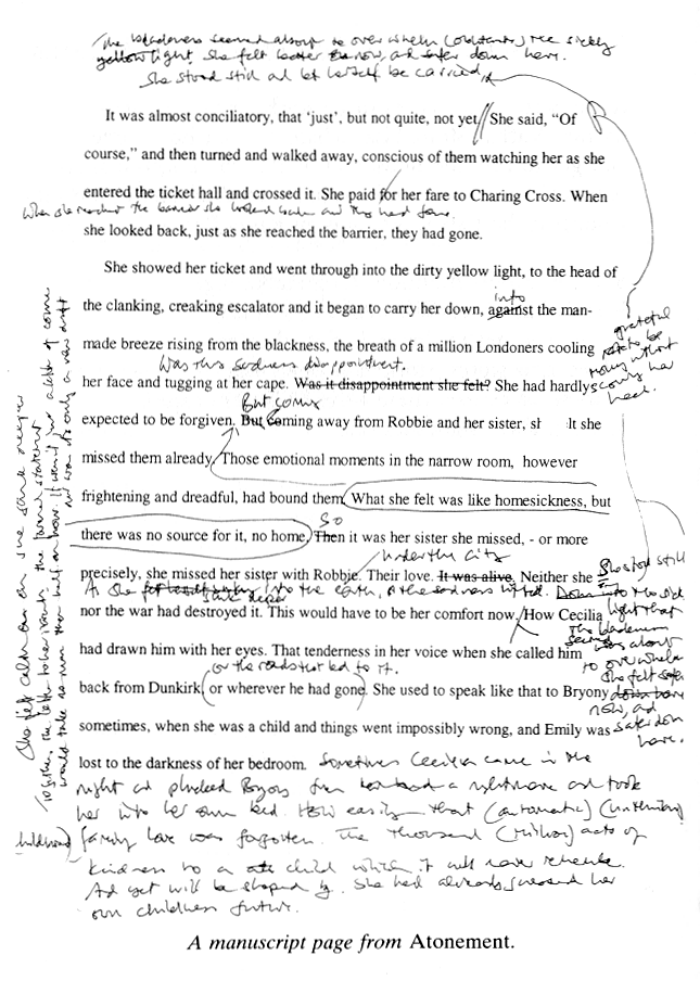 The blackness seemed about to overwhelm (obliterate) the sickly
yellow light. She felt better now, and safer down here.
She stood still and let herself be carried.
It was almost conciliatory, that ‘just’, but not quite, not yet. She said, “Of
course,” and then turned and walked away, conscious of them watching her as she
entered the ticket hall and crossed it. She paid for her fare to Charing Cross. When
When she reached the barrier she looked back and they had gone.
she looked back, just as she reached the barrier, they had gone.
She showed her ticket and went through into the dirty yellow light, to the head of
into
the clanking, creaking escalator and it began to carry her down, against the man-
made breeze rising from the blackness, the breath of a million Londoners cooling
Was this sadness disappointment.
her face and tugging at her cape. Was it disappointment she felt? She had hardly
But coming
expected to be forgiven. But Coming away from Robbie and her sister, st It she
missed them already. Those emotional moments in the narrow room, however
frightening and dreadful, had bound them. What she felt was like homesickness, but
So
there was no source for it, no home. Then it was her sister she missed, - or more
under the city
precisely, she missed her sister with Robbie. Their love. It was alive. Neither she
As she into the earth, the sadness lifted.
nor the war had destroyed it. This would have to be her comfort now. How Cecilia
had drawn him with her eyes. That tenderness in her voice when she called him
or the roads that led to it.
back from Dunkirk (or wherever he had gone). She used to speak like that to Bryony
sometimes, when she was a child and things went impossibly wrong, and Emily was
lost to the darkness of her bedroom. Sometimes Cecilia came in the
night and plucked Bryony from her bed a nightmare and took
her into her own bed. How easily that (automatic) (unthinking)
childhood) family love was forgotten. The thousand (million) acts of
kindness to a child which it will never remember.
And yet will be shaped by. She had already her
own children future.
grateful
to be
moving without
her
heel.
She stood still
light that
The blackness
seemed was about
to overwhelm
She felt safer
down here
now, and
safer down
here.
She felt calm as she sank deeper
together, the letter to her parents, the formal statement
would take no more than half an hour. It wasn't just a letter
only a new draft
A manuscript page from Atonement.